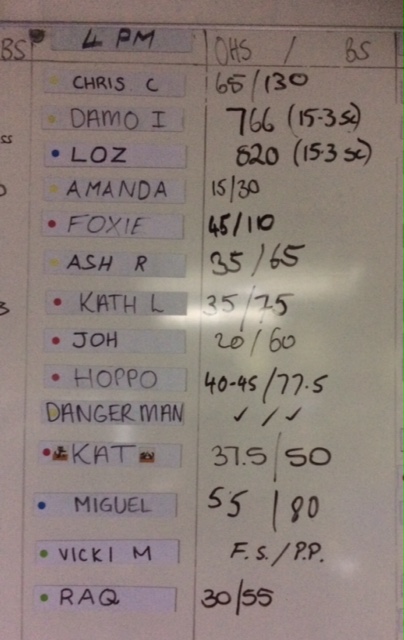 BS 4 PM OHS / BS
CHRIS C 65/130
ss DAMO I 766 (15-3 sc)
LOZ 820 (15-3 sc)
AMANDA 15/30
FOXIE 45/110
ASH R 35/65
KATH L 35/75
JOH 20/60
HOPPO 40-45/77.5
DANGERMAN ✓/✓
KAT 37.5/50
MIGUEL 55/80
VICKI M F.S./P.P.
RAQ 30/55